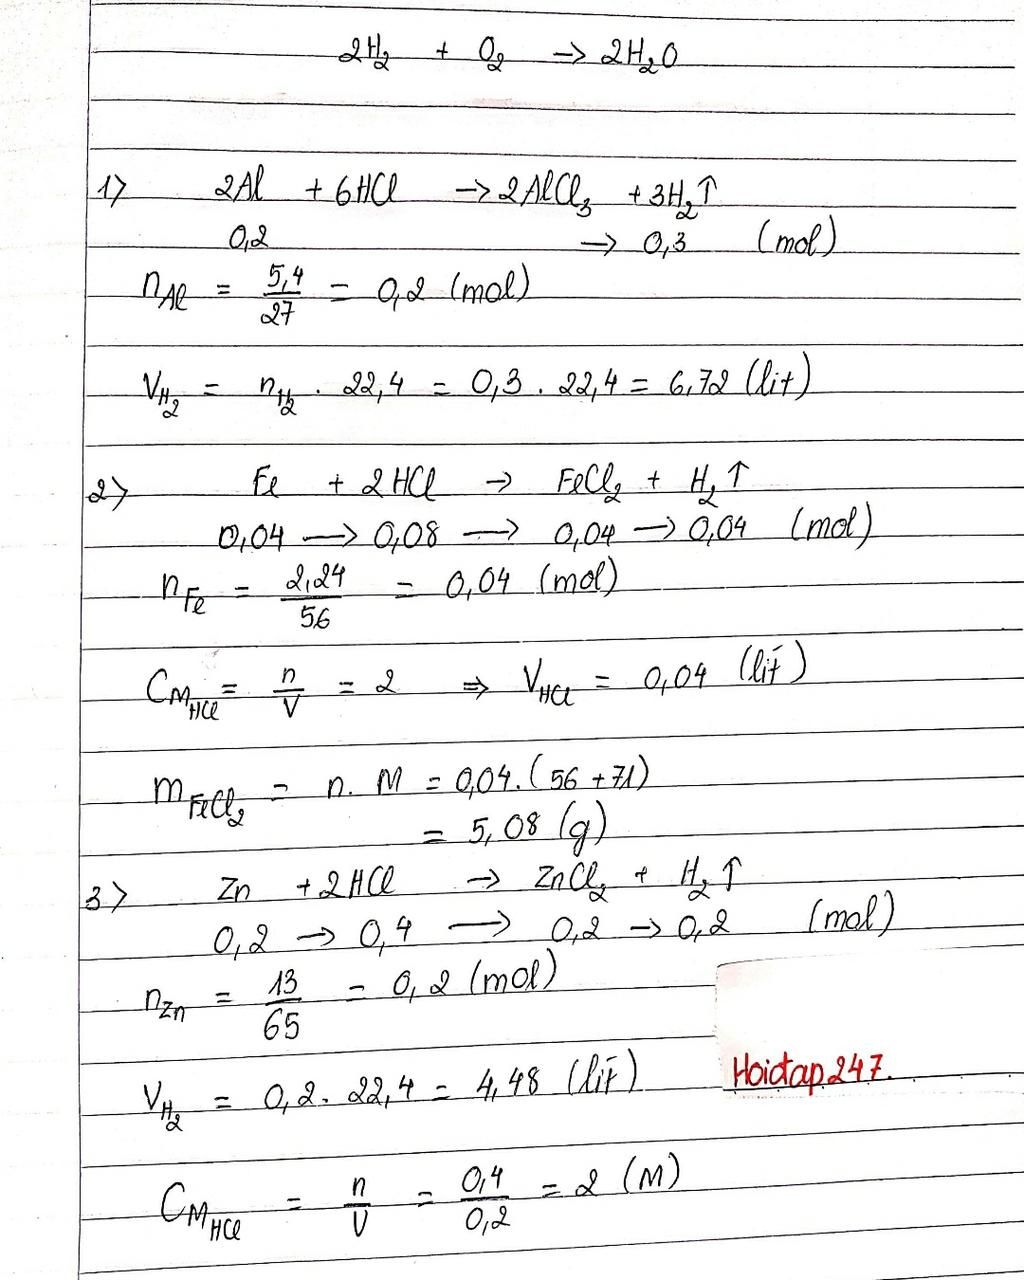 2H₂ + O₂ → 2H₂O
1) 2Al + 6HCl → 2AlCl₃ + 3H₂↑
0,2 → 0,3 (mol)
nAl = 5,4/27 = 0,2 (mol)
VH₂ = nH₂ . 22,4 = 0,3 . 22,4 = 6,72 (lít)
2) Fe + 2HCl → FeCl₂ + H₂↑
0,04 → 0,08 → 0,04 → 0,04 (mol)
nFe = 2,24/56 = 0,04 (mol)
CM HCl = n/V = 2 ⇒ VHCl = 0,04 (lít)
mFeCl₂ = n. M = 0,04.(56 + 71)
= 5,08 (g)
3) Zn + 2HCl → ZnCl₂ + H₂↑
0,2 → 0,4 → 0,2 → 0,2 (mol)
nZn = 13/65 = 0,2 (mol)
VH₂ = 0,2. 22,4 = 4,48 (lít)
Hoidap247.
CM HCl = n/V = 0,4/0,2 = 2 (M)